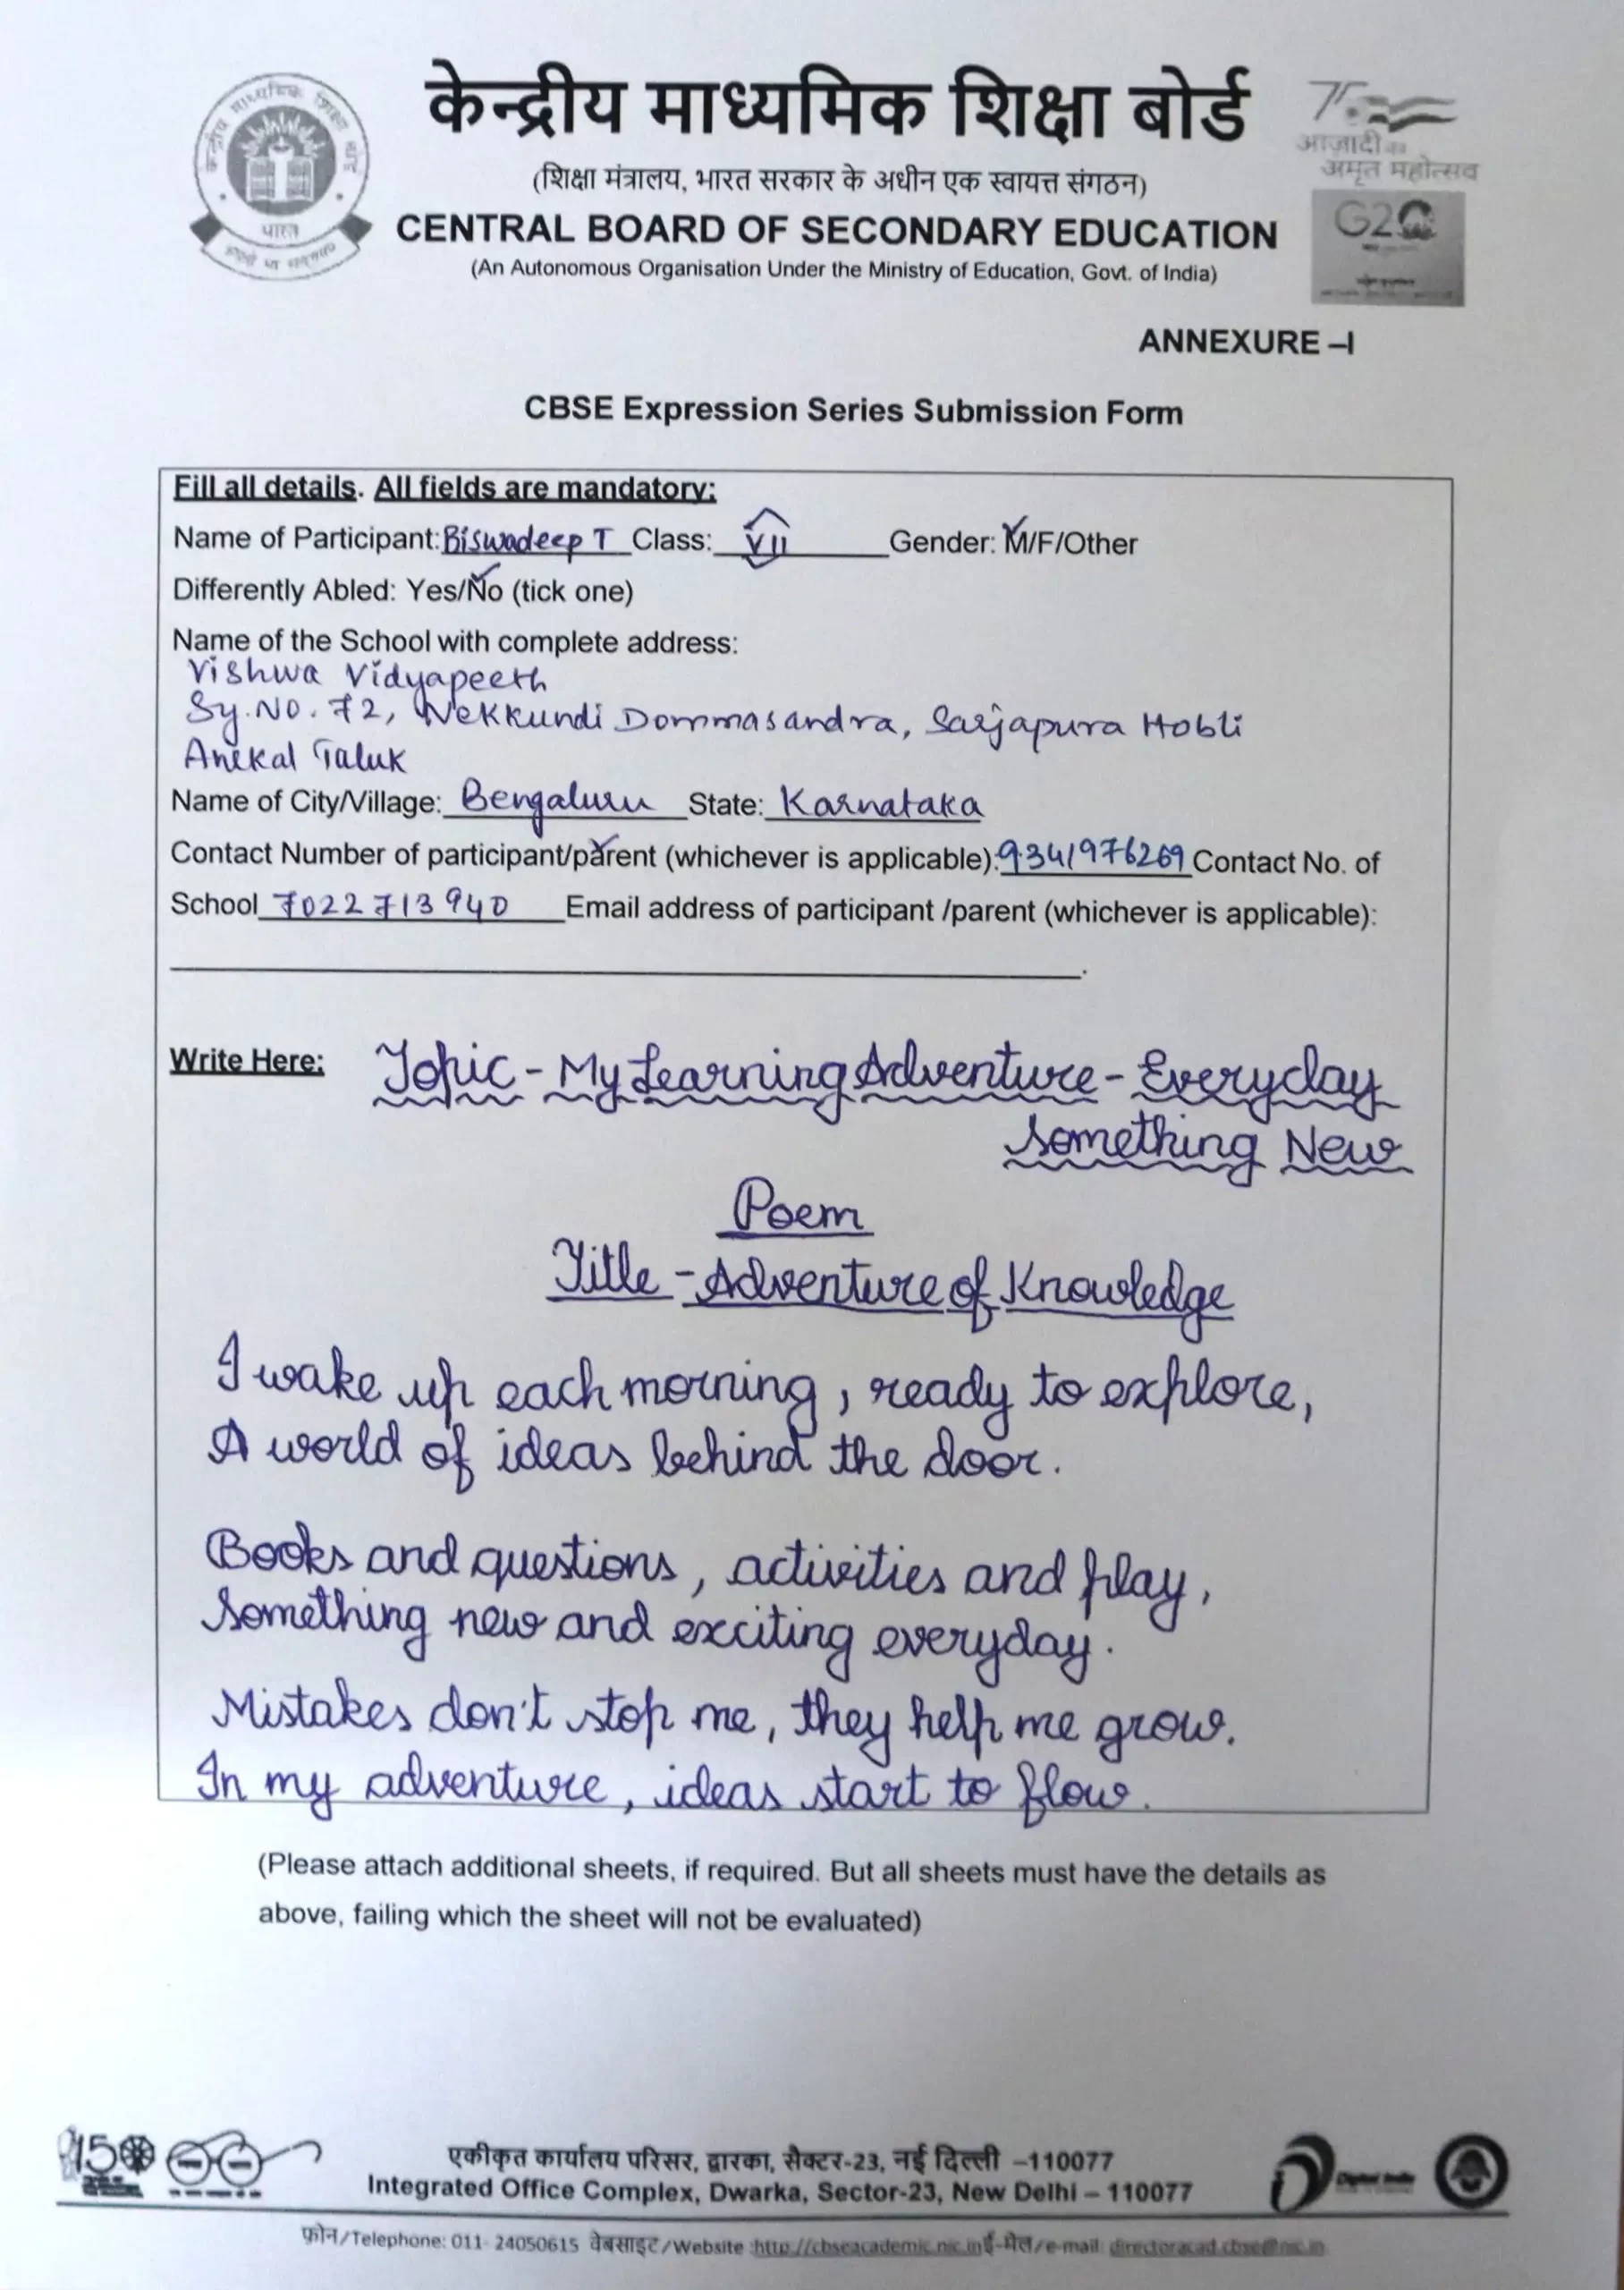 केन्द्रीय माध्यमिक शिक्षा बोर्ड
(शिक्षा मंत्रालय, भारत सरकार के अधीन एक स्वायत्त संगठन)
CENTRAL BOARD OF SECONDARY EDUCATION
(An Autonomous Organisation Under the Ministry of Education, Govt. of India)
भारत
75
आज़ादी का
अमृत महोत्सव
G20
ANNEXURE –I
CBSE Expression Series Submission Form
Fill all details. All fields are mandatory:
Name of Participant: Biswadeep T Class: VII Gender: M/F/Other
Differently Abled: Yes/No (tick one)
Name of the School with complete address:
Vishwa Vidyapeeth
Sy.NO. 72, Nekkundi Dommasandra, Sarjapura Hobli
Anekal Taluk
Name of City/Village: Bengaluru State: Karnataka
Contact Number of participant/parent (whichever is applicable): 9341976269 Contact No. of
School 7022713940 Email address of participant /parent (whichever is applicable):
Write Here: Topic - My Learning Adventure - Everyday
Something New
Poem
Title - Adventure of Knowledge
I wake up each morning, ready to explore,
A world of ideas behind the door.
Books and questions, activities and play,
Something new and exciting everyday.
Mistakes don't stop me, they help me grow.
In my adventure, ideas start to flow.
(Please attach additional sheets, if required. But all sheets must have the details as
above, failing which the sheet will not be evaluated)
150
एकीकृत कार्यालय परिसर, द्वारका, सैक्टर-23, नई दिल्ली –110077
Integrated Office Complex, Dwarka, Sector-23, New Delhi – 110077
Digital India
फ़ोन/Telephone: 011- 24050615 वेबसाइट/Website :http://cbseacademic.nic.in ई-मेल/e-mail: directoracad.cbse@nic.in